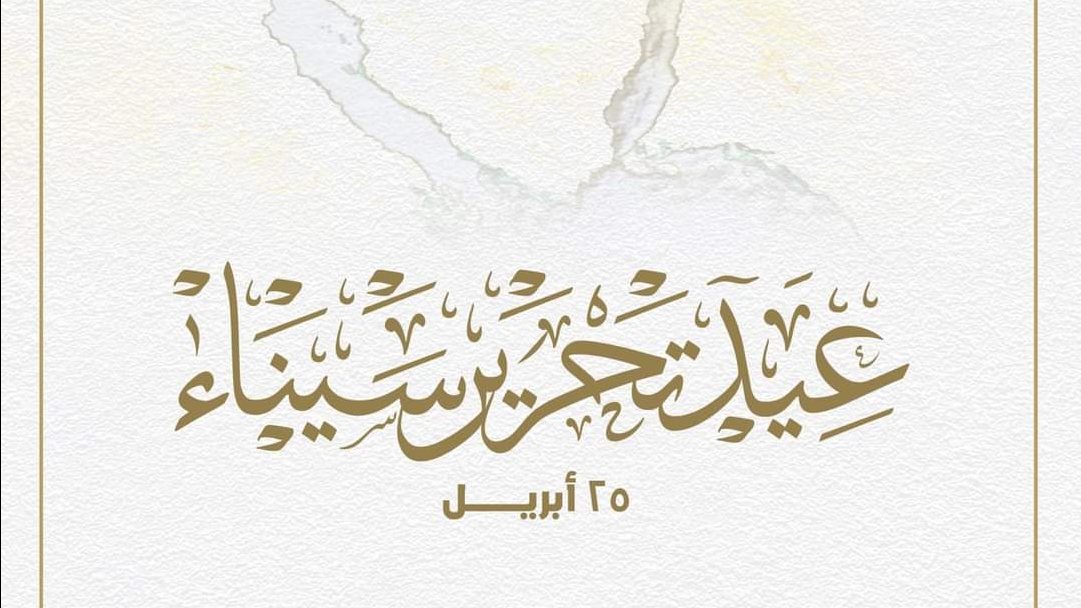 عيد تحرير سيناء
٢٥ أبريل